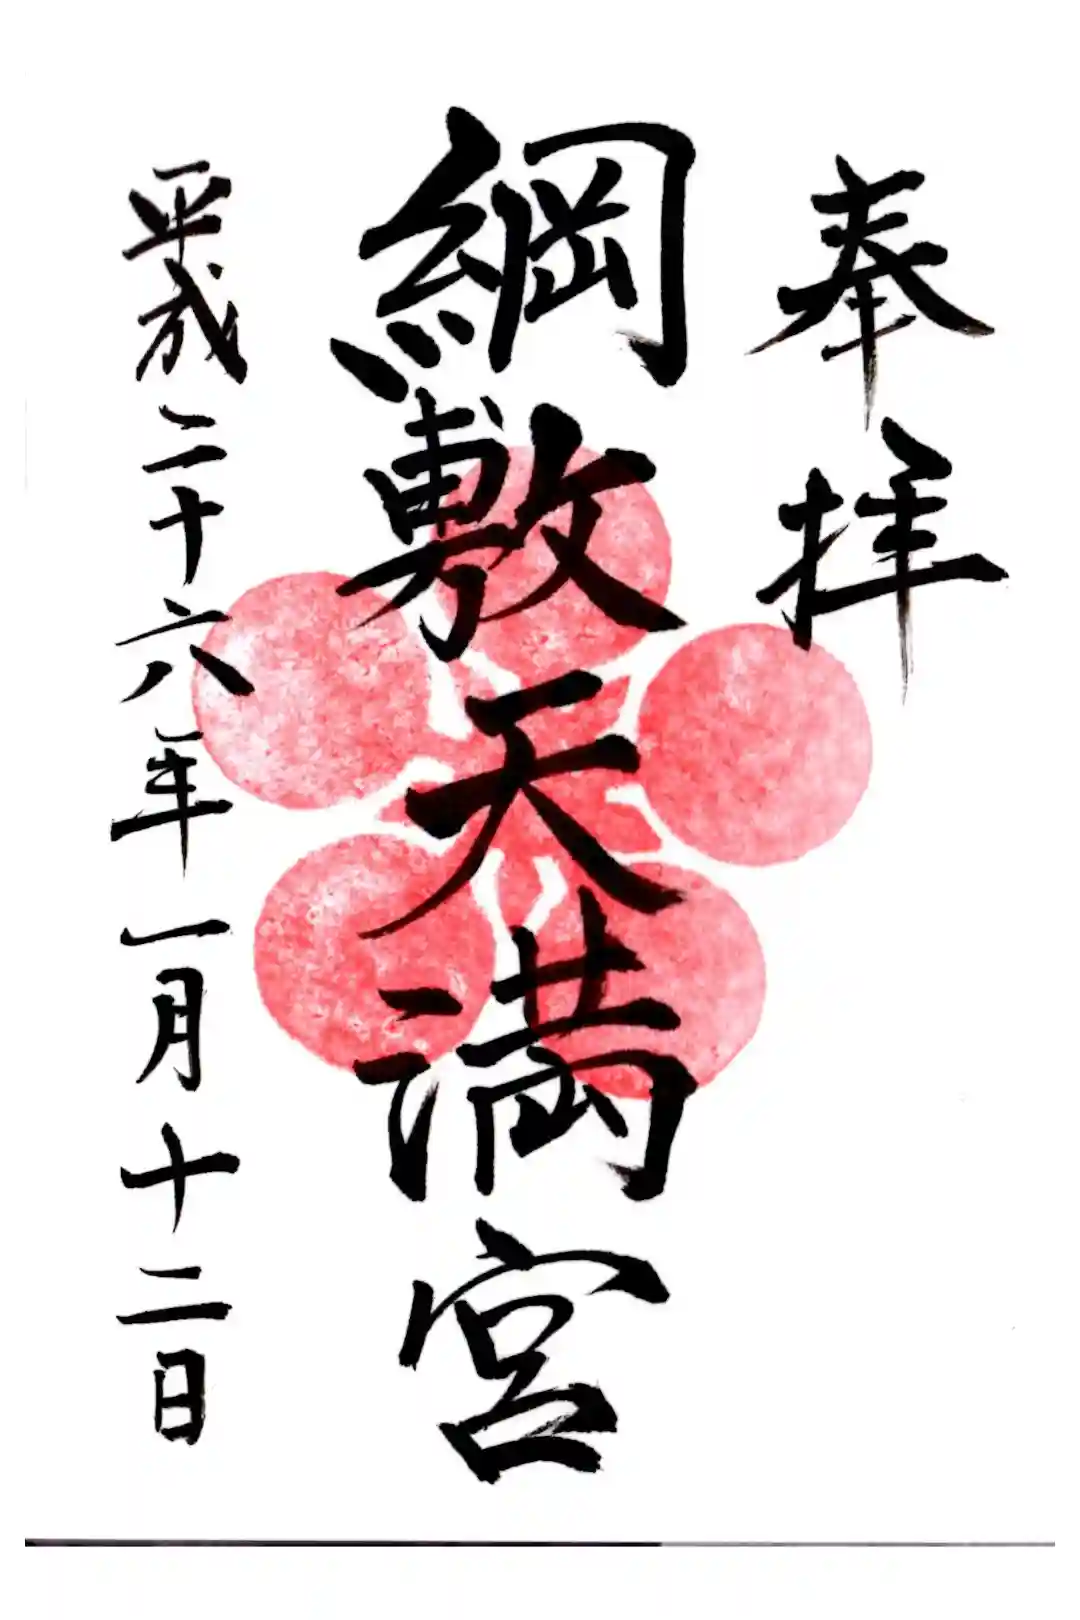 奉拝
綱敷天満宮
平成二十六年一月十二日